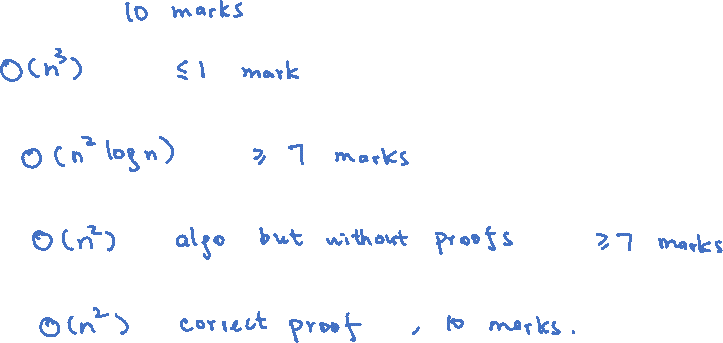 10 marks
O(n³) ≤1 mark
O(n² log n) ≥ 7 marks
O(n²) algo but without proofs ≥7 marks
O(n²) correct proof , 10 marks.